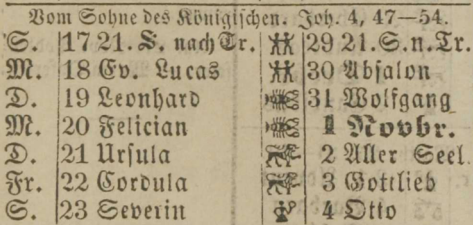 Vom Sohne des Königischen. Joh. 4, 47—54.
S. 17 21. S. nach Tr. 29 21. S. n. Tr.
M. 18 Ev. Lucas 30 Absalon
D. 19 Leonhard 31 Wolfgang
M. 20 Felician 1 Novbr.
D. 21 Ursula 2 Aller Seel.
Fr. 22 Cordula 3 Gottlieb
S. 23 Severin 4 Otto